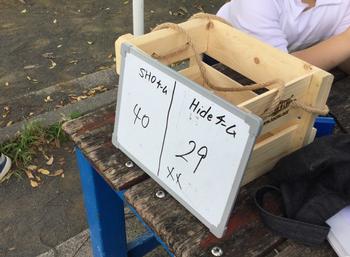 SHOチーム
40
Hideチーム
29
XX